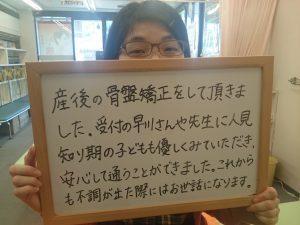 産後の骨盤矯正をして頂きま
した。受付の早川さんや先生に人見
知り期の子どもも優しくみていただき、
安心して通うことができました。これから
も不調が出た際にはお世話になります。